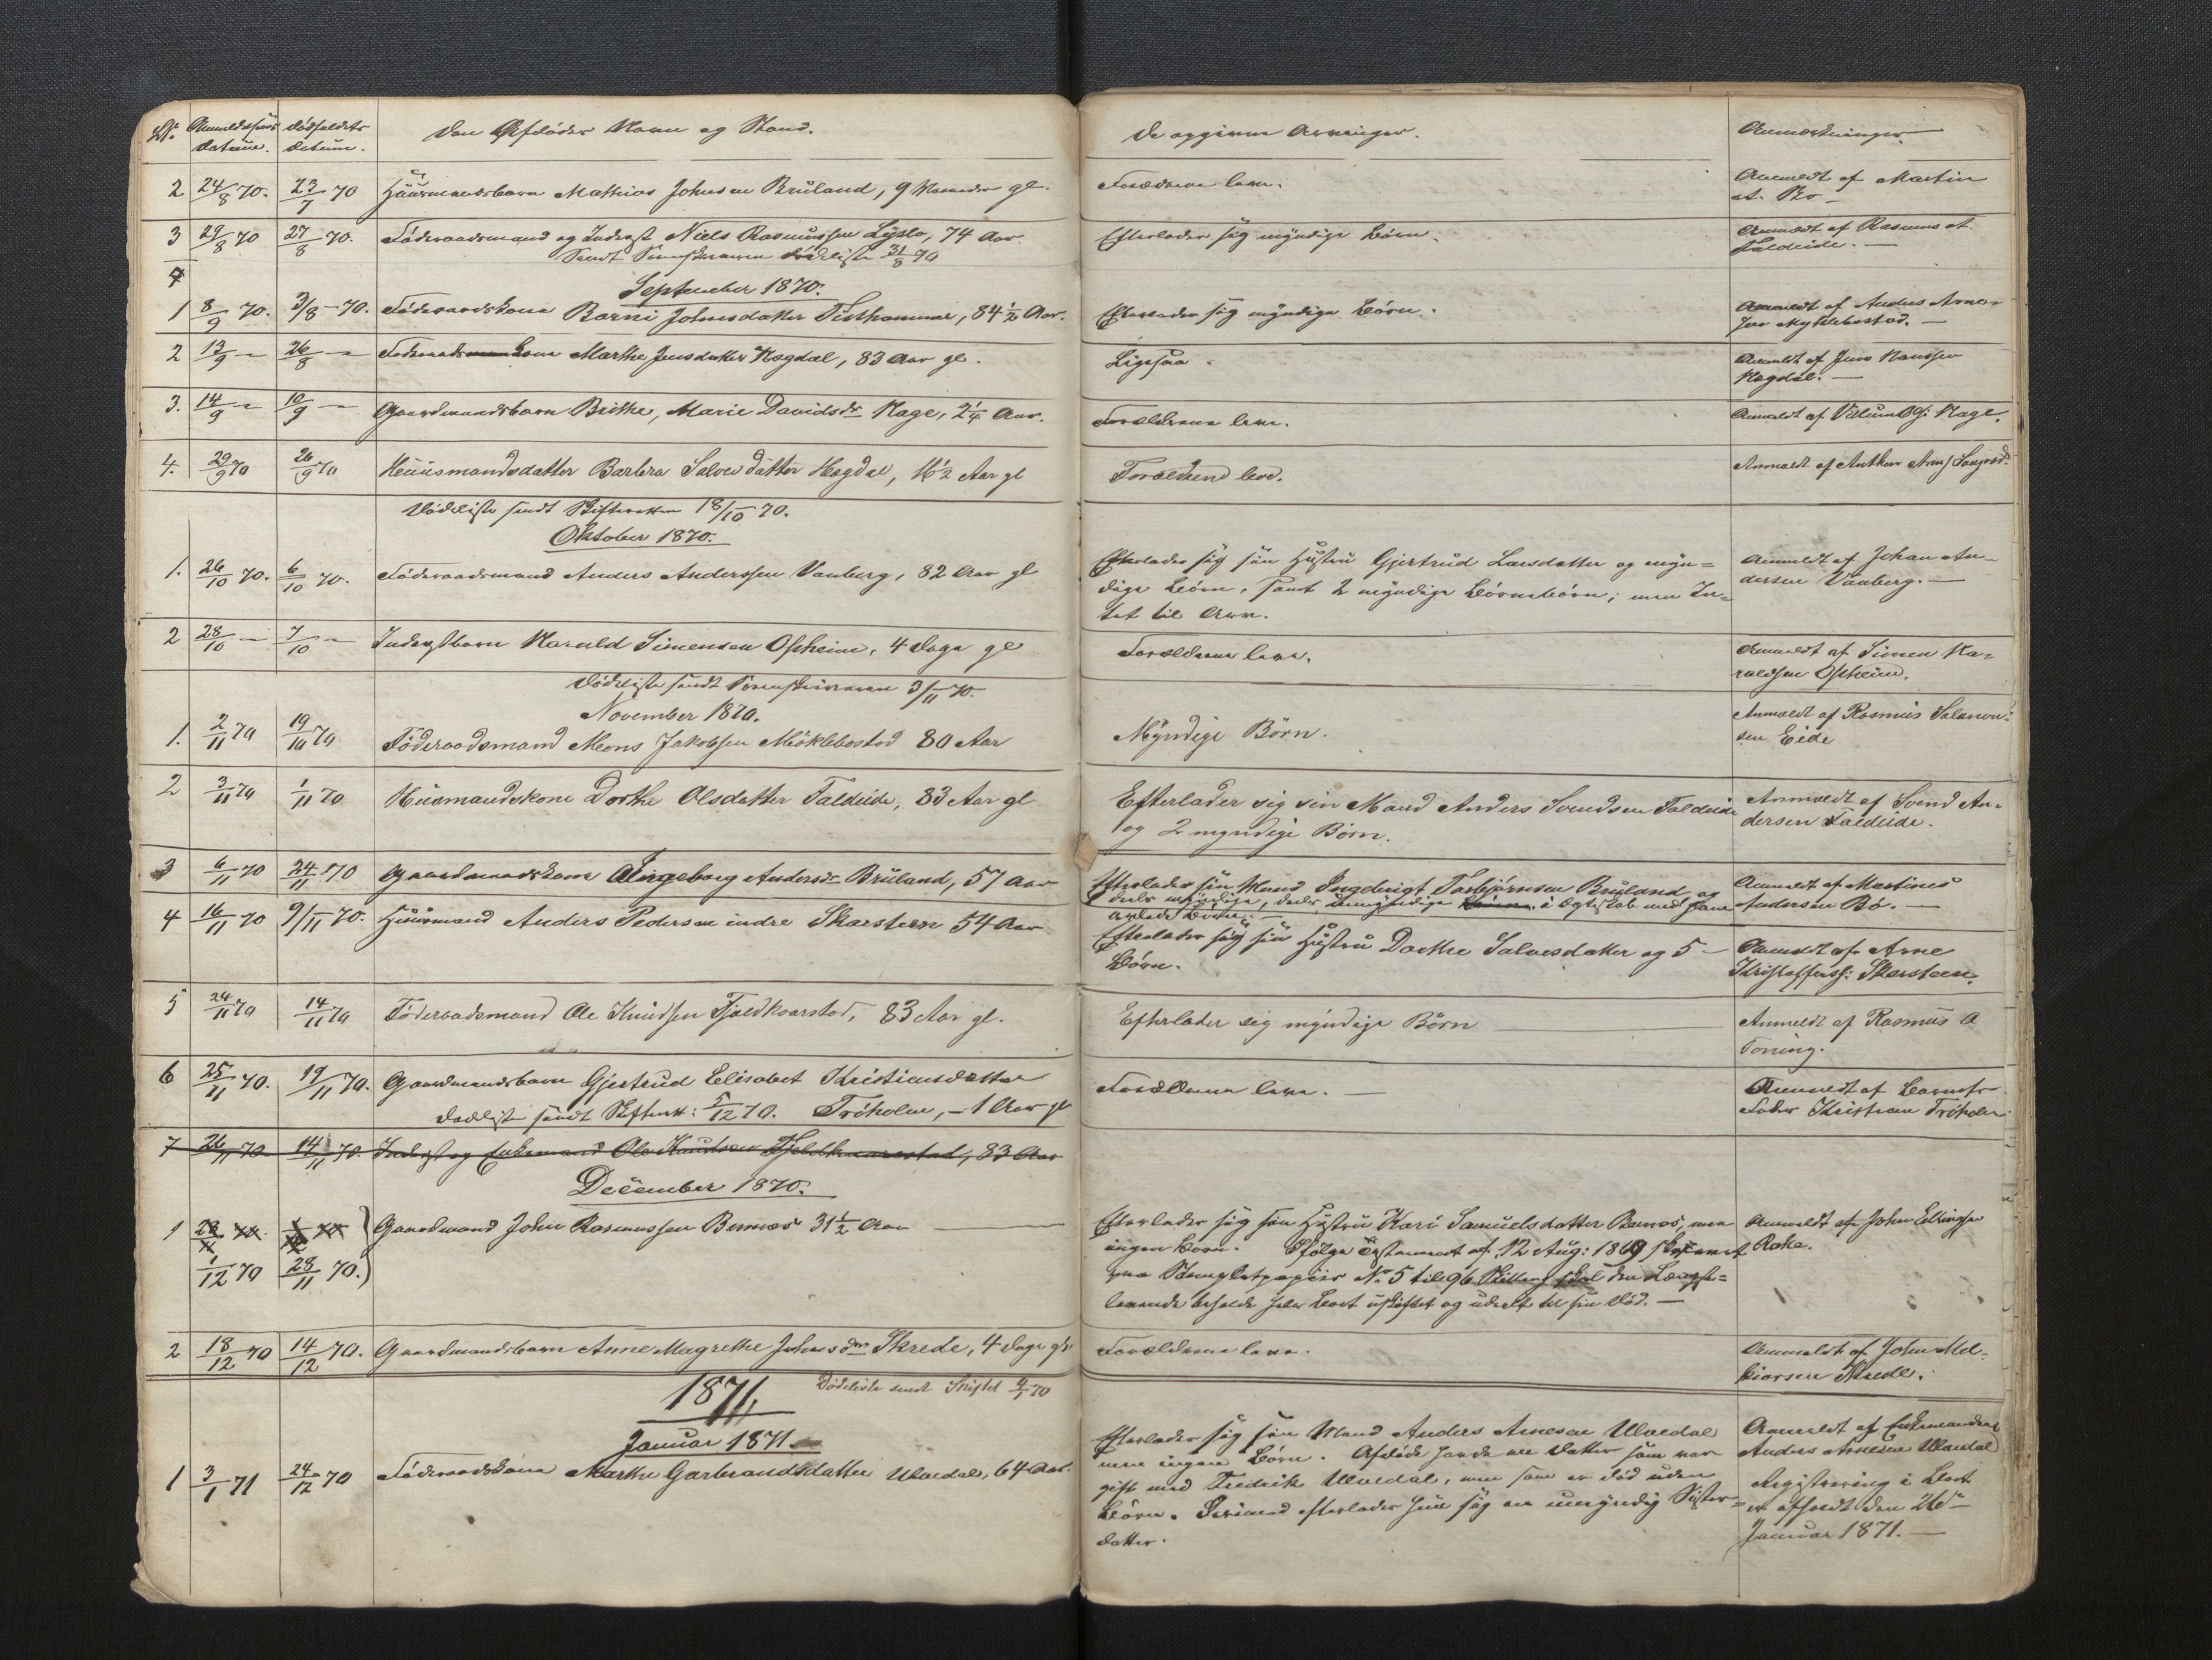 No. Anmeldelsens Datum. Dødsfaldets Datum. Den Afdødes Navn og Stand. De opgivne Arvinger. Anmærkninger.
2 24/8 70. 23/7 70 Huusmandsbarn Mathias Johnsen Bruland, 9 Maaneder gl. Forældrene leve. Anmeldt af Martin
A. Bø
3 29/8 70 27/8 70. Føderaadsmand og Inderst Niels Rasmussen Lyslo, 74 Aar. Efterlader sig myndige Børn. Anmeldt af Rasmus A.
Sendt Sorenskriveren Dødsliste 31/8 70 Faldeide.
September 1870.
1 8/9 70. 3/8 70. Føderaadskone Barni Johnsdatter Tisthammer, 84 1/2 Aar. Efterlader sig myndige Børn. Anmeldt af Anders Arne-
sen Myklebostad.
2 13/9 – 26/8 – Føderaadskone Marthe Jensdatter Hegdal, 83 Aar gl. Ligesaa. Anmeldt af Jens Hanssen
Hegdal.
3. 14/9 – 10/9 – Gaardmandsbarn Brithe, Marie Davidsdr Hage, 2 1/4 Aar. Forældrene leve. Anmeldt af Villum Hage.
4. 29/9 70 26/9 70 Huusmandsdatter Barbra Salvesdatter Hegdal, 16 1/2 Aar gl Forældrene leve. Anmeldt af Anthon
Dødsliste sendt Skifteretten 18/10 70.
Oktober 1870.
1. 26/10 70. 6/10 70. Føderaadsmand Anders Anderssen Vanberg, 82 Aar gl Efterlader sig sin Hustru Gjertrud Larsdatter og myn=
dige Børn, samt 2 myndige Børnebørn; men In=
tet til Arv. Anmeldt af Johan An-
dersen Vanberg.
2 28/10 – 7/10 – Inderstbarn Harald Simensen Opheim, 4 Dage gl Forældrene leve. Anmeldt af Simen Ha-
raldsen Opheim.
Dødsliste sendt Sorenskriveren 3/11 70.
November 1870.
1. 2/11 70 19/10 70 Føderaadsmand Mons Jakobsen Möklebostad 80 Aar Myndige Børn. Anmeldt af Rasmus Salamon-
sen Eide
2 3/11 70 1/11 70 Huusmandskone Dorthe Olsdatter Faldeide, 83 Aar gl Efterlader sig sin Mand Anders Svendsen Faldeide
og 2 myndige Børn. Anmeldt af Svend An-
dersen Faldeide.
3 6/11 70 24/11 70 Gaardmandskone Ingeborg Andersdr Bruland, 57 Aar Efterlader sin Mand Ingebrigt Torbjørnsen Bruland og
deels myndige, deels umyndige i Ægteskab med ham
avlede Børn. Anmeldt af Martines
Andersen Bø.
4 16/11 70 9/11 70. Huusmand Anders Pedersen indre Skarsteen 54 Aar Efterlader sig sin Hustru Dorthe Salvesdatter og 5
Børn. Anmeldt af Arne
Kristoffers: Skarsteen.
5 24/11 70 14/11 70 Föderaadsmand Ole Knudsen Fjeldkaarstad, 83 Aar gl. Efterlader sig myndige Børn Anmeldt af Rasmus A
Toning.
6 25/11 70. 19/11 70. Gaardmandsbarn Gjertrud Elisabet Kristiansdatter Forældrene leve. Anmeldt af Barnets
Dødsliste sendt Skifterett: 5/12 70. Trøholm, – 1 Aar gl Fader Kristian Trøholm
7 26/11 70 14/11 70. Inderst og Enkemand Ole Knudsen Fjeldkaarstad, 83 Aar
December 1870.
1 1/12 70 28/11 70. Gaardmand John Rasmussen Bennæs 31 1/2 Aar Efterlader sig sin Hustru Kari Samuelsdatter Bennæs, men
ingen Børn. Ifølge Testament af 12 Aug: 1869 skrevet
paa Stempletpapiir No 5 til 96 Skilling skal den Længst=
levende beholde hele Boet uskiftet og udeelt til sin Død. Anmeldt af John Ellingsen
Rake.
2 18/12 70 14/12 70. Gaardmandsbarn Anne Magrethe Johnsdr Skrede, 4 Dage gl. Forældrene leve. Anmeldt af John Mel-
kiorsen Skrede.
1871. Dødsliste sendt Skiftet 4/1 70
Januar 1871
1 3/1 71 24/12 70 Føderaadskone Marthe Garbrandtsdatter Ulvedal, 64 Aar. Efterlader sig sin Mand Anders Arnesen Ulvedal
men ingen Børn. Afdøde havde en Datter som var
gift med Fredrik Ulvedal, men som er død uden
Børn. Derimod efterlader hun sig en umyndig Søster=
datter. Anmeldt af Enkemanden
Anders Arnesen Ulvedal
Registrering i Boet
er afholdt den 26de
Januar 1871.